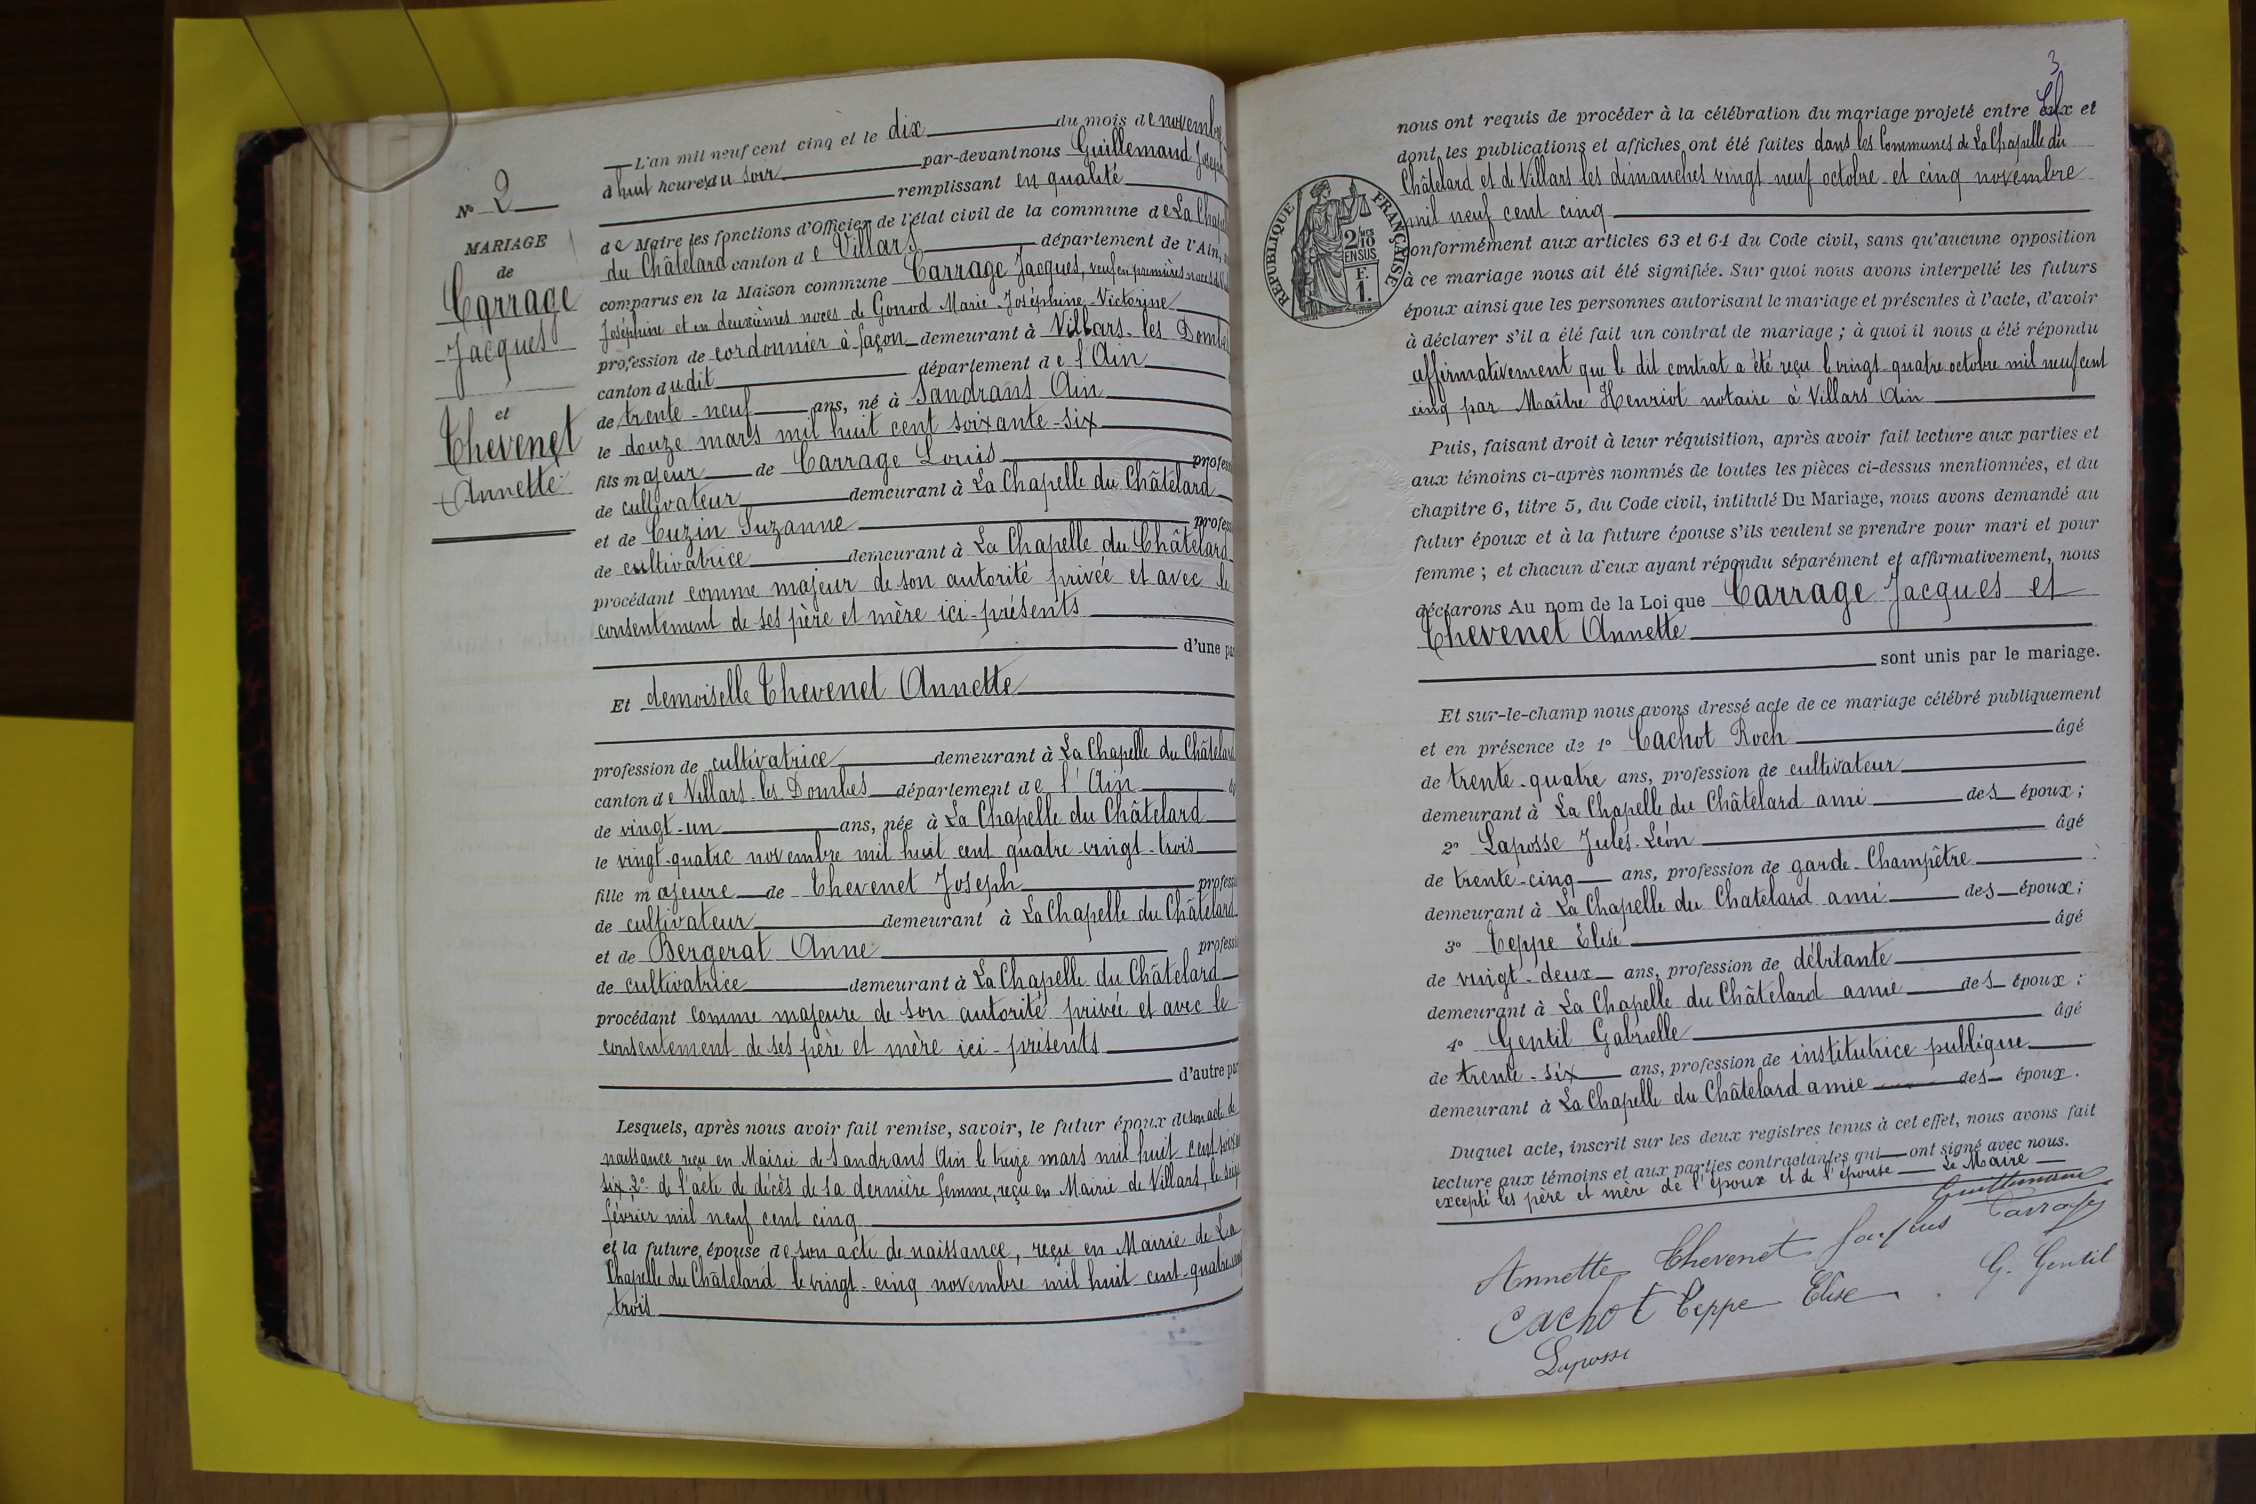 N° 2
MARIAGE
de
Carrage
Jacques
et
Thevenet
Annette
L'an mil neuf cent cinq et le dix du mois de novembre
à huit heures du soir par-devant nous Guillemaud Joseph
remplissant en qualité
de Maire les fonctions d'Officier de l'état civil de la commune de La Chapelle
du Châtelard canton de Villars département de l'Ain,
comparus en la Maison commune Carrage Jacques, veuf en premières noces de
Joséphine et en deuxièmes noces de Gonod Marie-Joséphine-Victorine
profession de cordonnier à façon demeurant à Villars-les Dombes
canton dudit département de l'Ain
de trente-neuf ans, né à Sandrans Ain
le douze mars mil huit cent soixante-six
fils majeur de Carrage Louis profess
de cultivateur demeurant à La Chapelle du Châtelard
et de Cuzin Suzanne profess
de cultivatrice demeurant à La Chapelle du Châtelard
procédant comme majeur de son autorité privée et avec le
consentement de ses père et mère ici-présents
d'une pa
Et demoiselle Thevenet Annette
profession de cultivatrice demeurant à La Chapelle du Châtelard
canton de Villars-les Dombes département de l'Ain
de vingt-un ans, née à La Chapelle du Châtelard
le vingt-quatre novembre mil huit cent quatre-vingt-trois
fille majeure de Thevenet Joseph professi
de cultivateur demeurant à La Chapelle du Châtelard
et de Bergerat Anne professi
de cultivatrice demeurant à La Chapelle du Châtelard
procédant comme majeure de son autorité privée et avec le
consentement de ses père et mère ici-présents
d'autre par
Lesquels, après nous avoir fait remise, savoir, le futur époux de son acte de
naissance reçu en Mairie de Sandrans Ain le treize mars mil huit cent soixante
six 2° de l'acte de décès de sa dernière femme, reçu en Mairie de Villars, le
février mil neuf cent cinq
et la future épouse de son acte de naissance, reçu en Mairie de La
Chapelle du Châtelard le vingt-cinq novembre mil huit cent-quatre-vingt
trois
3
nous ont requis de procéder à la célébration du mariage projeté entre eux et
dont les publications et affiches ont été faites dans les Communes de La Chapelle du
Châtelard et de Villars les dimanches vingt neuf octobre et cinq novembre
mil neuf cent cinq
RÉPUBLIQUE FRANÇAISE
2/10
EN SUS
F.
1.
conformément aux articles 63 et 64 du Code civil, sans qu'aucune opposition
à ce mariage nous ait été signifiée. Sur quoi nous avons interpellé les futurs
époux ainsi que les personnes autorisant le mariage et présentes à l'acte, d'avoir
à déclarer s'il a été fait un contrat de mariage ; à quoi il nous a été répondu
affirmativement que le dit contrat a été reçu le vingt-quatre octobre mil neuf cent
cinq par Maître Henriot notaire à Villars Ain
Puis, faisant droit à leur réquisition, après avoir fait lecture aux parties et
aux témoins ci-après nommés de toutes les pièces ci-dessus mentionnées, et du
chapitre 6, titre 5, du Code civil, intitulé Du Mariage, nous avons demandé au
futur époux et à la future épouse s'ils veulent se prendre pour mari et pour
femme ; et chacun d'eux ayant répondu séparément et affirmativement, nous
déclarons Au nom de la Loi que Carrage Jacques et
Thevenet Annette
sont unis par le mariage.
Et sur-le-champ nous avons dressé acte de ce mariage célébré publiquement
et en présence de 1° Cachot Roch âgé
de trente-quatre ans, profession de cultivateur
demeurant à La Chapelle du Châtelard ami des époux ;
2° Laposse Jules-Léon âgé
de trente-cinq ans, profession de garde-Champêtre
demeurant à La Chapelle du Chatelard ami des époux ;
3° Teppe Elise âgé
de vingt-deux ans, profession de débitante
demeurant à La Chapelle du Châtelard amie des époux ;
4° Gentil Gabrielle âgé
de trente-six ans, profession de institutrice publique
demeurant à La Chapelle du Châtelard amie des époux.
Duquel acte, inscrit sur les deux registres tenus à cet effet, nous avons fait
lecture aux témoins et aux parties contractantes qui ont signé avec nous.
excepté les père et mère de l'époux et de l'épouse Le Maire
Guillemaud
Annette Thevenet Jacques Carrage
Cachot Teppe Elise G. Gentil
Laposse